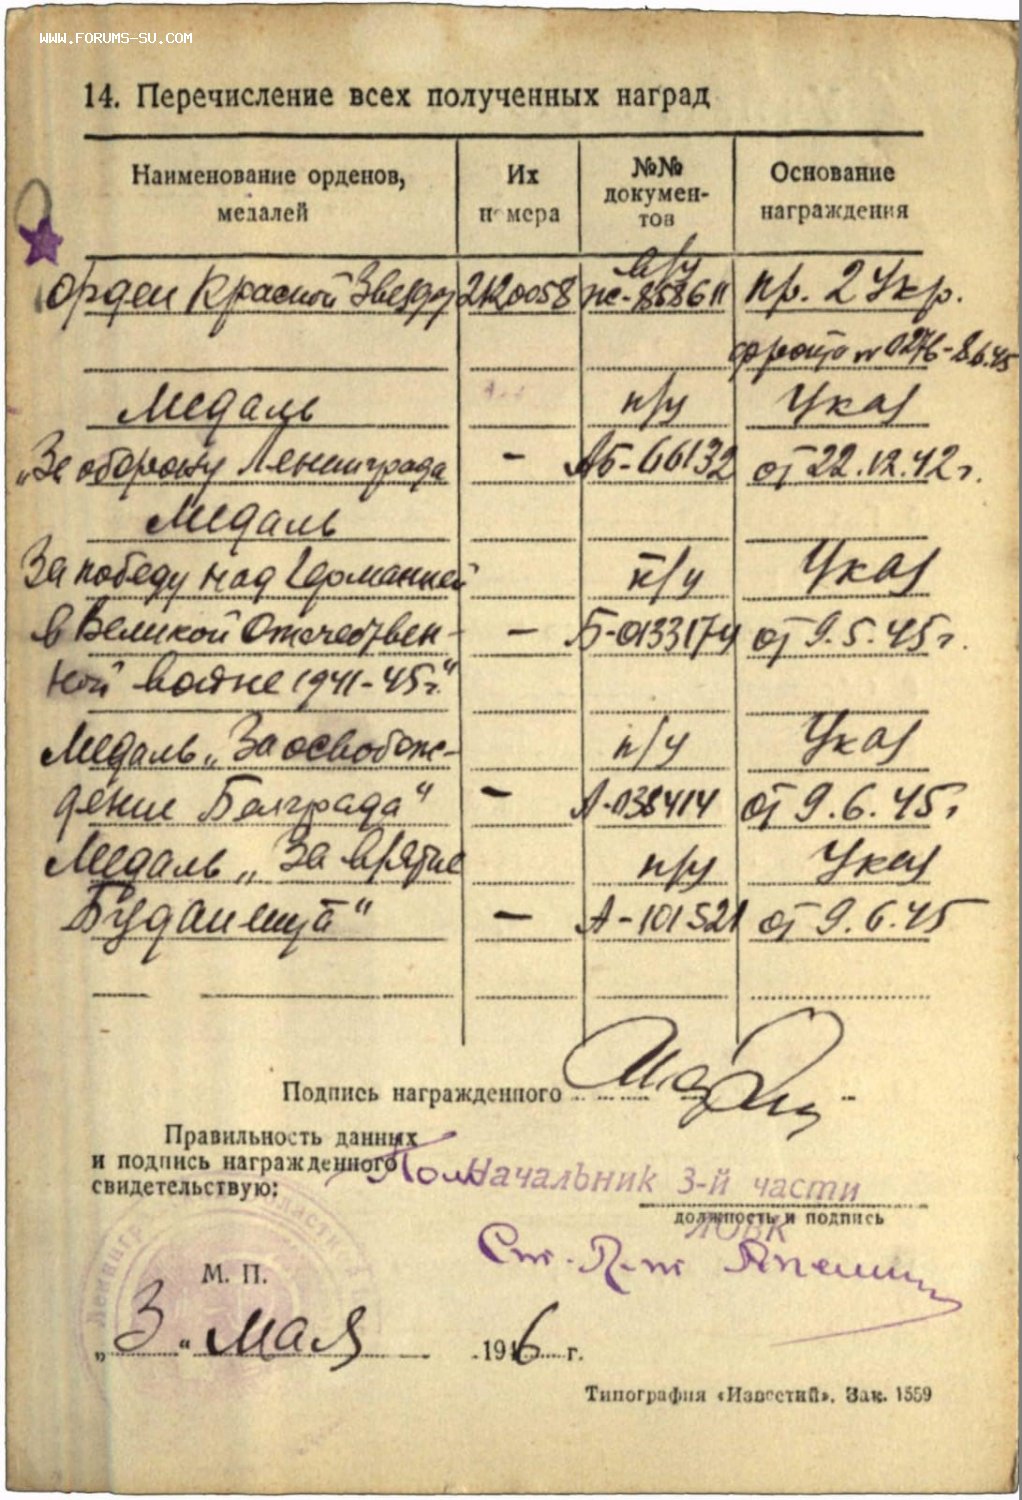 WWW.FORUMS-SU.COM
14. Перечисление всех полученных наград
Наименование орденов, медалей
Их номера
№№ докумен-
тов
Основание награждения
в/у
Орден Красной Звезды 2120058 пс-858611 пр. 2 Укр.
фронта № 0276-8.6.45
Медаль п/у Указ
„За оборону Ленинграда — АБ-66132 от 22.12.42 г.
Медаль
За победу над Германией п/у Указ
в Великой Отечествен- — Б-0133174 от 9.5.45 г.
ной войне 1941-45 г."
Медаль „За освобож- п/у Указ
дение Белграда" — А-038414 от 9.6.45 г
Медаль „За взятие п/у Указ
Будапешта" — А-101521 от 9.6.45
Подпись награжденного
Правильность данных
и подпись награжденного
свидетельствую:
Пом Начальник 3-й части
должность и подпись
ЛОВК
Ст. Л-т
М. П.
„3" мая 1946 г.
Типография «Известий». Зак. 1559